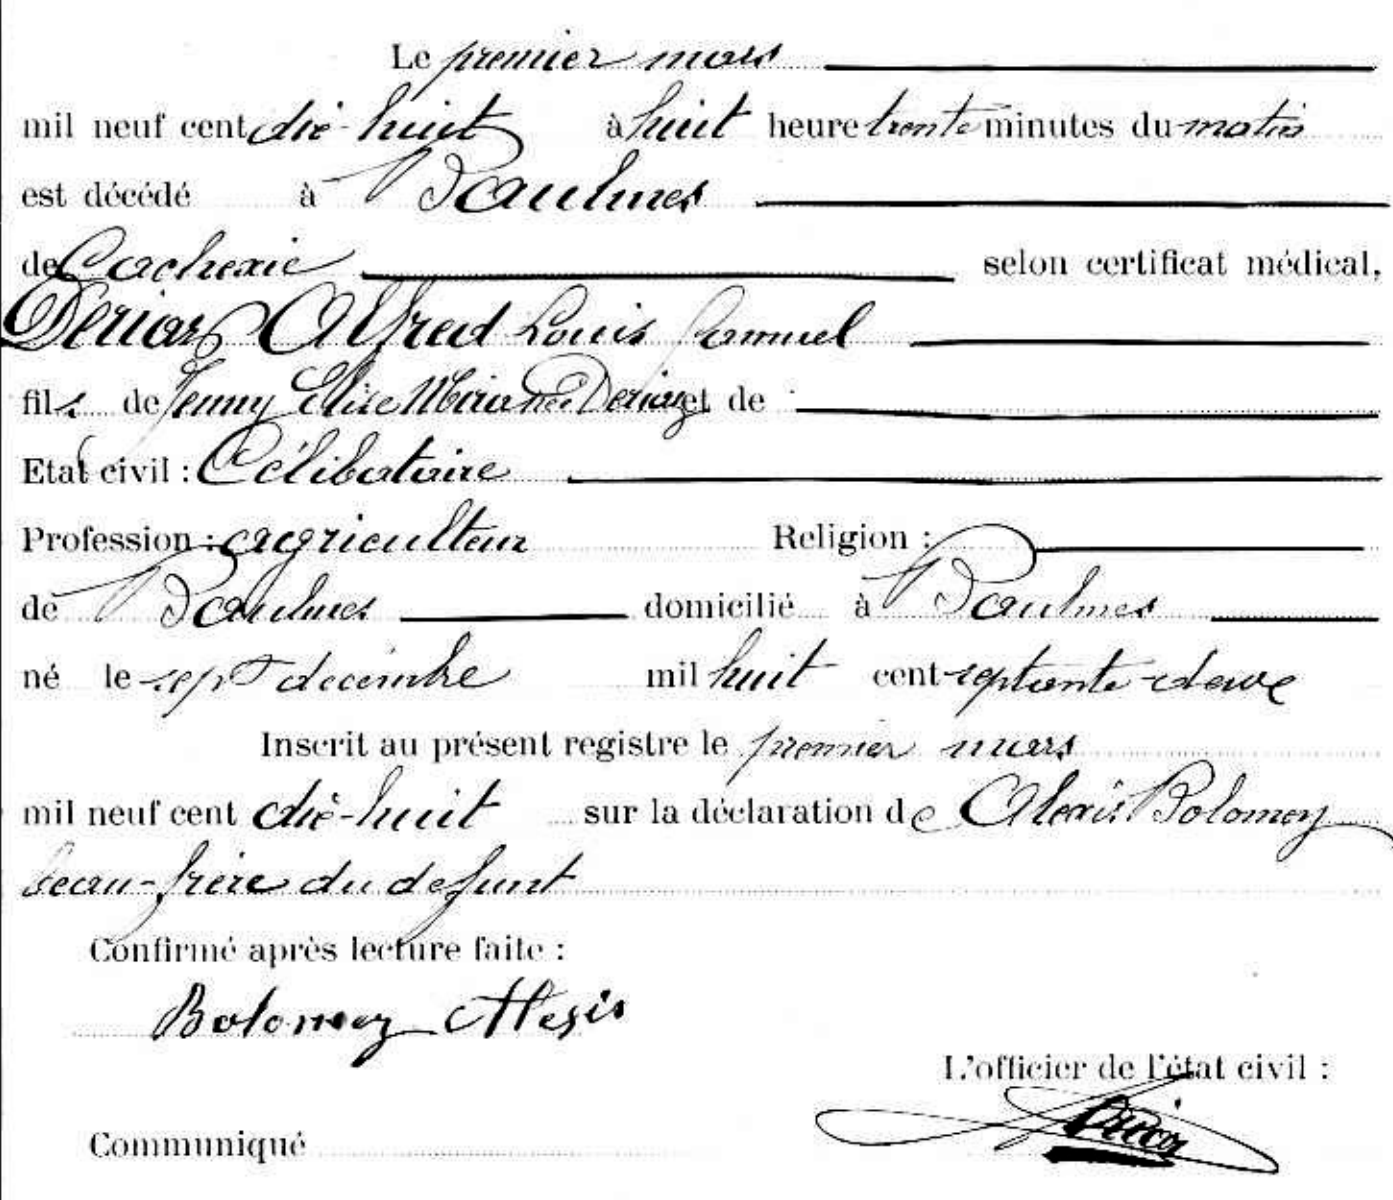 Le premier mars
mil neuf cent dix-huit à huit heure trente minutes du matin
est décédé à Baulmes
de Cachexie selon certificat médical,
Deriaz Alfred Louis Samuel
fils de Jenny Elise Marie née Deriaz et de
Etat civil : Célibataire
Profession : agriculteur Religion : P
de Baulmes domicilié à Baulmes
né le sept décembre mil huit cent septante-deux
Inscrit au présent registre le premier mars
mil neuf cent dix-huit sur la déclaration de Alexis Bolomey
beau-frère du defunt
Confirmé après lecture faite :
Bolomey Alexis
L'officier de l'état civil :
Communiqué